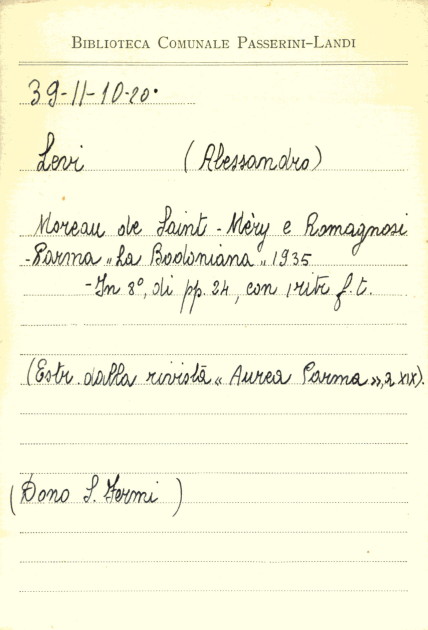 BIBLIOTECA COMUNALE PASSERINI-LANDI
39-11-10-20.
Levi (Alessandro)
Moreau de Saint-Mèry e Romagnosi
-Parma "La Bodoniana" 1935
-In 8°, di pp. 24, con 1 ritr f.t.
(Estr. dalla rivista « Aurea Parma », a XIX).
(Dono S. Fermi )